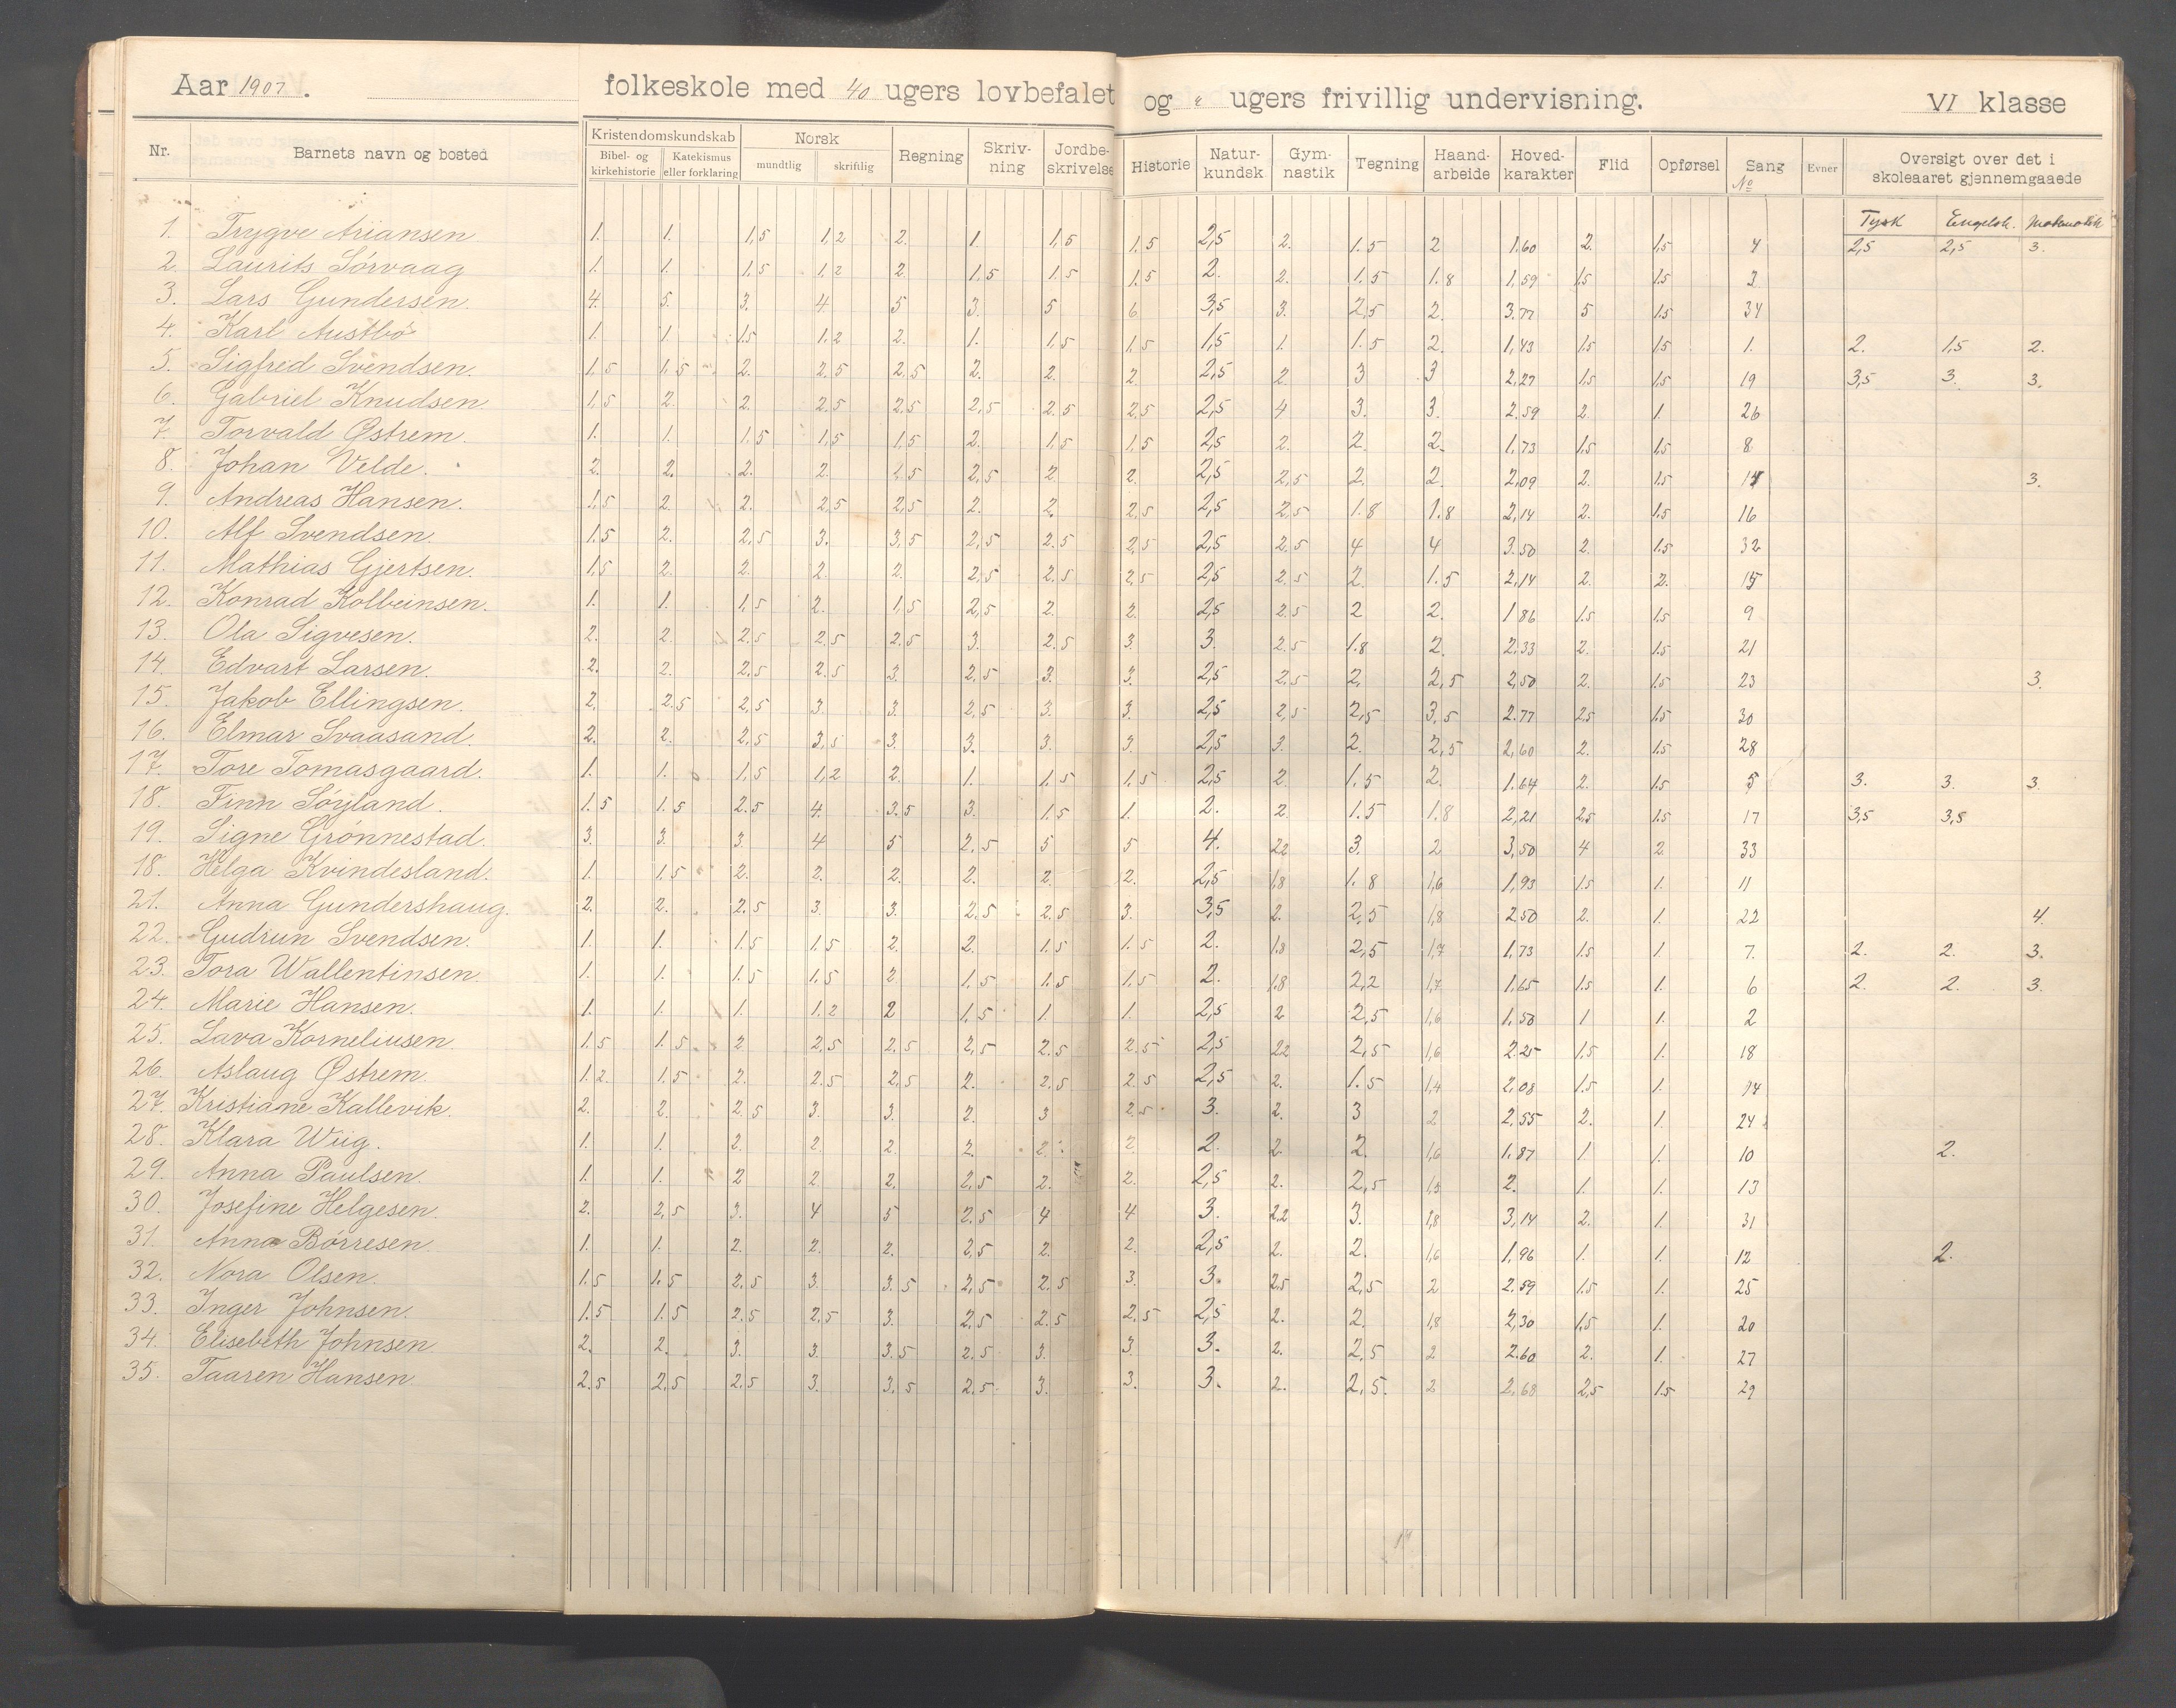 Aar 1907. folkeskole med 40 ugers lovbefalet og " ugers frivillig undervisning. VI klasse
Nr. Barnets navn og bosted Kristendomskundskab Bibel- og kirkehistorie Katekismus eller forklaring Norsk mundtlig skriftlig Regning Skriv-ning Jordbe-skrivelse Historie Natur-kundsk Gym-nastik Tegning Haand-arbeide Hoved-karakter Flid Opførsel Sang No Evner Oversigt over det i skoleaaret gjennemgaaede
Tysk Engelsk.
1. Trygve Ariansen 1. 1. 1,5 1,2 2. 1. 1,5 1.5 2,5 2. 1.5 2 1.60 2. 1.5 4 2,5 2,5 3.
2. Laurits Sørvaag 1. 1. 1.5 1,2 2. 1.5 1.5 1.5 2. 2. 1.5 1.8 1,59 1.5 1.5 3
3. Lars Gundersen. 4. 5. 3. 4 5 3. 5 6 3,5 3. 2,5 2. 3.77 5 1.5 34
4. Karl Austbø 1. 1. 1.5 1,2 2. 1. 1,5 1,5 1,5 1. 1.5 2. 1,43 1.5 1.5 1. 2. 1,5 2.
5. Sigfred Svendsen. 1,5 1,5 2. 2.5 2,5 2. 2. 2. 2,5 2. 3 3 2,27 1.5 1.5 19 3,5 3. 3.
6. Gabriel Knudsen 1,5 2. 2. 2,5 2,5 2,5 2.5 2,5 2,5 4 3. 3. 2.59 2. 1. 26
7. Torvald Østrem. 1. 1. 1,5 1,5 1,5 2. 1,5 1,5 2,5 2. 2. 2. 1,73 1.5 1.5 8
8. Johan Velde. 2. 2. 2. 2. 1,5 2,5 2. 2. 2,5 2,5 2. 2. 2,09 2. 1.5 3.
9. Andreas Hansen. 1,5 2. 2. 2,5 2,5 2. 2. 2,5 2,5 2,5 1.8 1.8 2,14 2. 1.5 16
10. Alf Svendsen. 1.5 2. 2,5 3. 3,5 2,5 2.5 2,5 2,5 2.5 4 4 3.50 2. 1.5 32
11. Mathias Gjertsen. 1,5 2. 2. 2. 2. 2,5 2.5 2.5 2,5 2.5 2. 1.5 2,14 2. 2. 15
12. Konrad Kolbeinsen. 1. 1. 1,5 2. 1,5 2,5 2. 2. 2,5 2.5 2 2. 1 86 1.5 1.5 9
13. Ola Sigvesen. 2. 2. 2.5 2.5 2.5 3. 2.5 3. 3. 2.5 1.8 2. 2,33 2. 1.5 21
14. Edvart Larsen. 2. 2. 2,5 2.5 3. 2,5 3. 3. 2,5 2,5 2. 2,5 2,50 2. 1.5 23 3.
15. Jakob Ellingsen. 2. 2.5 2,5 3. 3. 2,5 3. 3. 2,5 2,5 2,5 3,5 2.77 2,5 1.5 30
16. Elmar Svaasand. 2. 2. 2,5 3,5 3. 3. 3. 3. 2,5 3. 2. 2,5 2,60 2. 1.5 28
17. Tore Tomasgaard. 1. 1. 1,5 1,2 2. 1. 1,5 1.5 2,5 2. 1.5 2. 1.64 2. 1.5 5 3. 3. 3.
18. Finn Søyland. 1.5 1.5 2.5 4. 3.5 3. 1.5 1. 2. 2. 1.5 1.8 2,21 2,5 1.5 17 3,5 3,5
19. Signe Grønnestad. 3. 3. 3. 4 5 2.5 5 5 4. 2,2 3. 2 3,50 4 2. 33
18. Helga Kvindesland. 1. 1,5 2. 2. 2. 2. 2. 2. 2,5 1,8 1.8 1,6 1,93 1.5 1. 11
21. Anna Gundershaug. 2. 2. 2.5 3. 3. 2.5 2.5 3. 3,5 2. 2,5 1,8 2.50 2. 1. 22 4.
22. Gudrun Svendsen. 1. 1. 1.5 1.5 2. 2. 1.5 1.5 2. 1.8 2,5 1,7 1,73 1.5 1 7. 2. 2. 3.
23. Tora Wallentinsen. 1. 1. 1.5 1,5 2. 1,5 1,5 1,5 2. 1.8 2,2 1,7 1,65 1.5 1. 6 2. 2. 3.
24. Marie Hansen. 1. 1. 1. 1,2 2 1,5 1. 1. 2,5 2 2,5 1,6 1,50 1 1. 2
25. Lava Korneliusen 1.5 1.5 2. 2,5 2.5 2,5 2.5 2.5 2,5 2,2 2,5 1,6 2.25 1.5 1. 18
26. Aslaug Østrem. 1.2. 1.5 2. 2.5 2,5 2. 2.5 2.5 2,5 2. 1.5 1,4 2,08 1.5 1. 14
27. Kristiane Kallevik. 2. 2. 2.5 3. 3. 2. 3 2.5 3. 2. 3 2 2,55 2. 1. 24
28. Klara Wiig. 1. 1. 2. 2. 2. 2. 2. 2 2. 2. 2. 1,6 1.87 1. 1. 10 2.
29. Anna Paulsen. 1. 1. 2 2. 2. 2,5 2. 2. 2,5 2. 2,5 1,5 2. 1. 1. 13
30. Josefine Helgesen. 2. 2,5 3. 4 5 2.5 4 4 3. 2,2 3. 1,8 3,14 2. 1. 31
31. Anna Børresen. 1. 1. 2. 2. 2. 2,5 2. 2. 2,5 2. 2. 1,6 1,96 1. 1. 12 2.
32. Nora Olsen. 1.5 1.5 2,5 3. 3.5 2,5 2.5 3. 3. 2,5 2,5 2 2.59 1.5 1. 25
33. Inger Johnsen. 1.5 1.5 2.5 2,5 3. 2,5 2.5 2,5 2,5 2. 2. 1,8 2,30 1,5 1. 20
34. Elisebeth Johnsen 2. 2. 3. 3. 3.5 2.5 3. 3. 3. 2. 2,5 2 2.60 2. 1. 27
35. Taaren Hansen 2.5 2,5 2.5 3. 3,5 2,5 3. 3. 3. 2. 2,5. 2 2,68 2,5 1.5 29